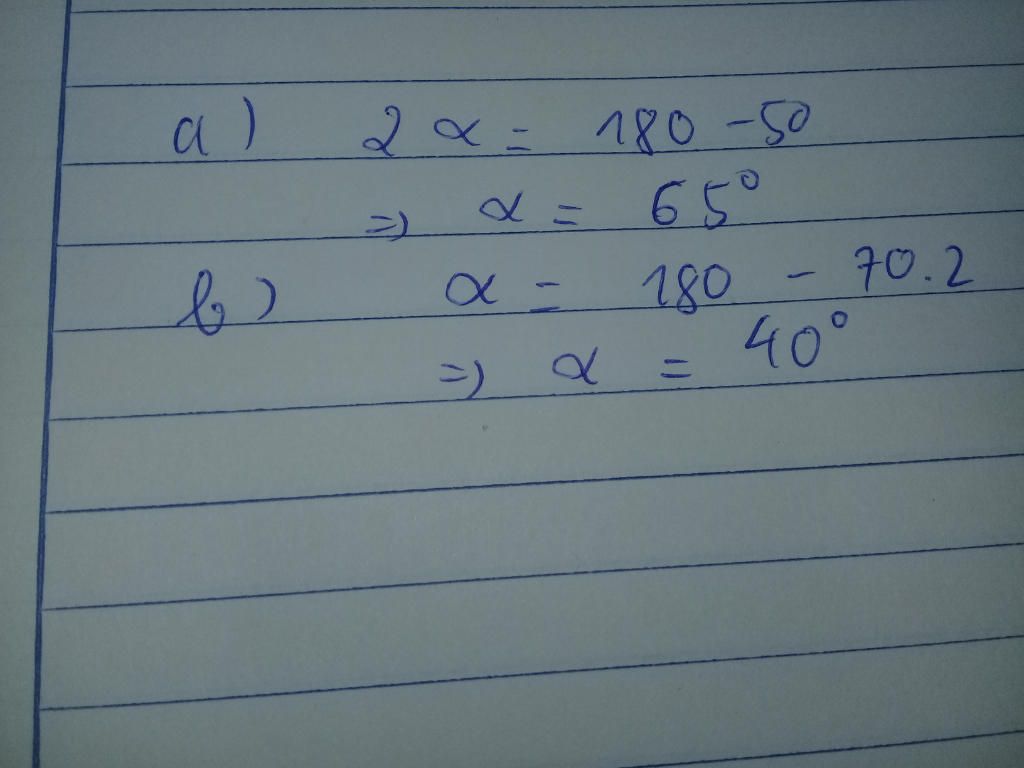 a) 2α = 180 - 50
=> α = 65°
b) α = 180 - 70.2
=> α = 40°